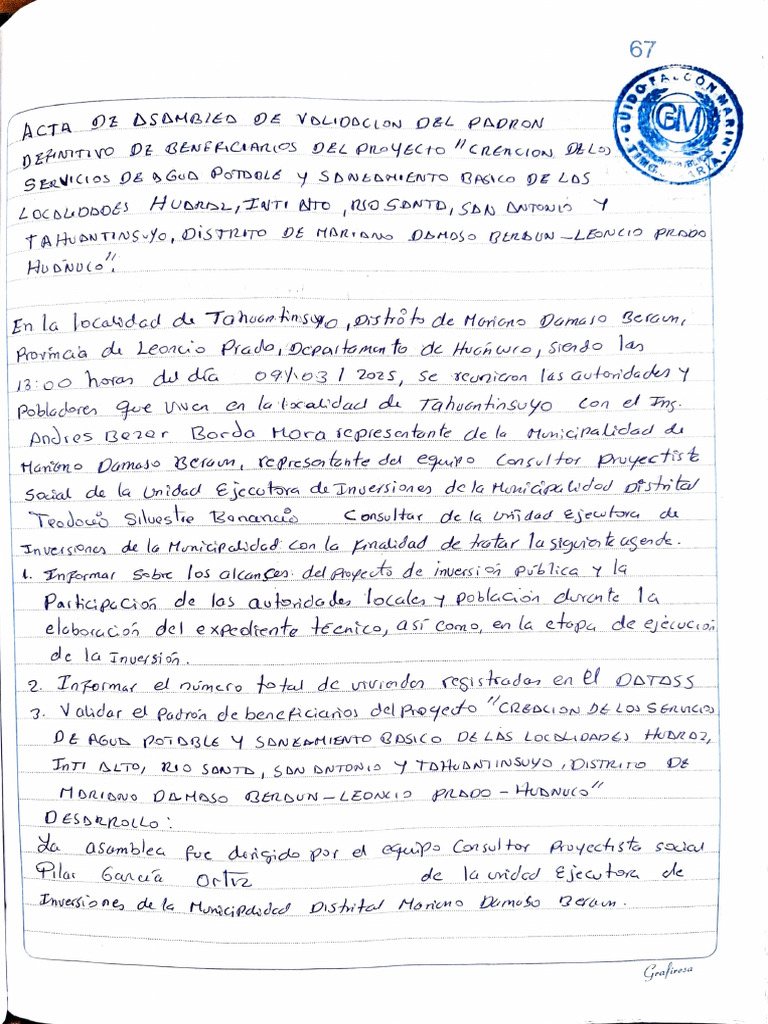 67
GUIDO FALCON MARIN
GFM
ACTA DE ASAMBLEA DE VALIDACION DEL PADRON
DEFINITIVO DE BENEFICIARIOS DEL PROYECTO "CREACION DE LOS
SERVICIOS DE AGUA POTABLE Y SANEAMIENTO BASICO DE LAS
LOCALIDADES HUARAZ, INTI ALTO, RIO SANTA, SAN ANTONIO Y
TAHUANTINSUYO, DISTRITO DE MARIANO DAMASO BERAUN - LEONCIO PRADO
HUÁNUCO".
En la localidad de Tahuantinsuyo, Distrito de Mariano Damaso Beraun,
Provincia de Leoncio Prado, Departamento de Huánuco, siendo las
13:00 horas del día 09/03/2025, se reunieron las autoridades y
Pobladores que viven en la localidad de Tahuantinsuyo con el Ing.
Andres Bezer Borda Mora representante de la Municipalidad de
Mariano Damaso Beraun, representante del equipo Consultor Proyectista
Social de la Unidad Ejecutora de Inversiones de la Municipalidad Distrital
Teodocio Silvestre Bonancio Consultar de la Unidad Ejecutora de
Inversiones de la Municipalidad con la finalidad de tratar la siguiente agenda.
1. Informar sobre los alcances del proyecto de inversión pública y la
Participación de las autoridades locales y población durante la
elaboración del expediente técnico, así como, en la etapa de ejecución
de la Inversión.
2. Informar el número total de viviendas registradas en el DATASS
3. Validar el padrón de beneficiarios del proyecto "CREACION DE LOS SERVICIOS
DE AGUA POTABLE Y SANEAMIENTO BASICO DE LAS LOCALIDADES HUARAZ,
INTI ALTO, RIO SANTA, SAN ANTONIO Y TAHUANTINSUYO, DISTRITO DE
MARIANO DAMASO BERAUN - LEONCIO PRADO - HUANUCO"
DESARROLLO:
La asamblea fue dirigido por el equipo Consultor Proyectista social
Pilar García Ortiz de la unidad Ejecutora de
Inversiones de la Municipalidad Distrital Mariano Damaso Beraun.
Grafiresa